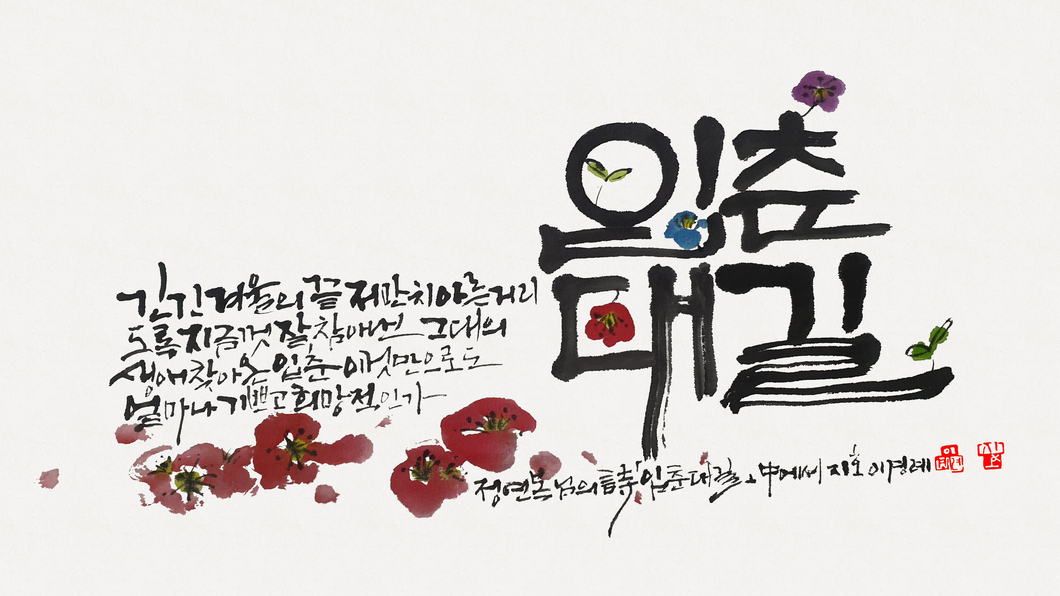 입춘
대길
긴긴 겨울의 끝 저만치 아른거리
도록 지금껏 잘 그대의
생애 찾아온 입춘 이것만으로도
얼마나 기쁘고 희망적인가
정연복 님의 詩 '입춘대길' 中에서 지호 이경례